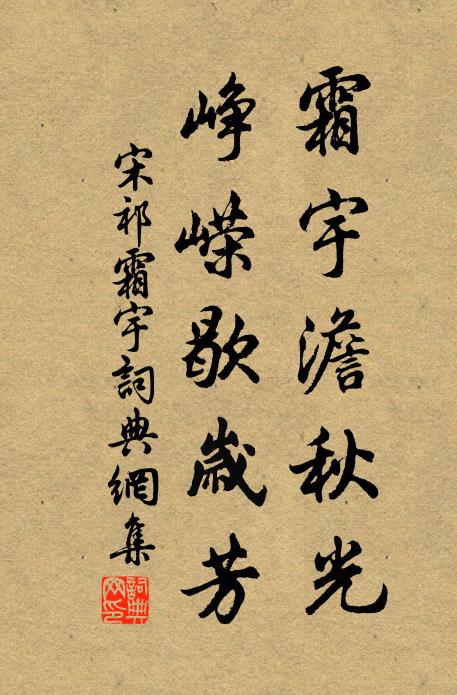 霜宇澹秋光
峥嵘歇歲芳
宋祁霜宇詞典網集
詞典网印